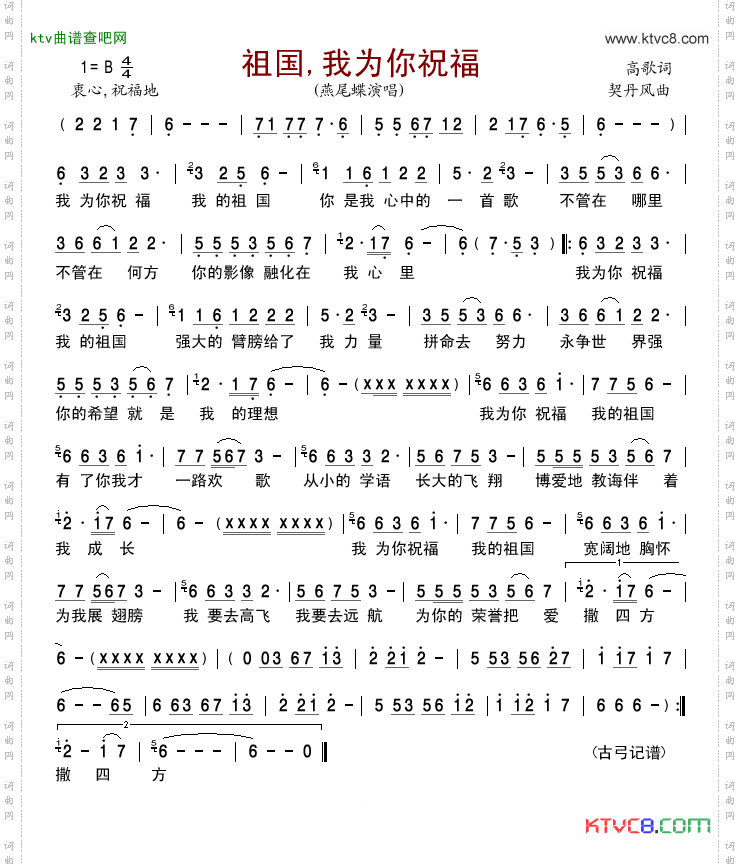 ktv曲谱查吧网
www.ktvc8.com
祖国,我为你祝福
1= B 4/4
高歌词
衷心,祝福地
(燕尾蝶演唱)
契丹风曲
( 2 2 1 7 | 6 - - - | 7 1 7 7 7 · 6 | 5 5 6 7 1 2 | 2 1 7 6 · 5 | 6 - - - ) |
6 3 2 3 3 · | 2 3 2 5 6 - | 6 1 1 6 1 2 2 | 5 · 2 2 3 - | 3 5 5 3 6 6 · |
我 为你祝 福 我 的祖 国 你 是我 心中的 一 首 歌 不管在 哪里
3 6 6 1 2 2 · | 5 5 5 3 5 5 6 7 | 1 2 · 1 7 6 - | 6 ( 7 · 5 3 ) ‖: 6 3 2 3 3 · |
不管在 何方 你的影像 融化在 我 心 里 我为你 祝福
2 3 2 5 6 - | 6 1 1 6 1 2 2 2 | 5 · 2 2 3 - | 3 5 5 3 6 6 · | 3 6 6 1 2 2 · |
我 的祖国 强大的 臂膀给了 我 力 量 拼命去 努力 永争世 界强
5 5 5 3 5 6 7 | 1 2 · 1 7 6 - | 6 - (X X X X X X X) | 5 6 6 3 6 1 · | 7 7 5 6 - |
你的希望 就 是 我 的理想 我为你 祝福 我的祖国
5 6 6 3 6 1 · | 7 7 5 6 7 3 - | 5 6 6 3 3 2 · | 5 6 7 5 3 - | 5 5 5 5 3 5 6 7 |
有 了你我才 一路欢 歌 从小的 学语 长大的飞 翔 博爱地 教诲伴 着
1 2 · 1 7 6 - | 6 - (X X X X X X X X) | 5 6 6 3 6 1 · | 7 7 5 6 - | 5 5 5 3 6 6 · |
我 成长 我 为你祝福 我的祖国 宽阔地 胸怀
1
7 7 5 6 7 3 - | 5 6 6 3 3 2 · | 5 6 7 5 3 - | 5 5 5 5 3 5 6 7 | 1 2 · 1 7 6 |
为我展 翅膀 我 要去高飞 我要去远 航 为你的 荣誉把 爱 撒 四 方
6 - (X X X X X X X X) | ( 0 0 3 6 7 1 3 | 2 2 1 2 - | 5 5 3 5 6 2 7 | 1 1 7 1 7 |
6 - - 6 5 | 6 6 3 6 7 1 3 | 2 2 1 2 - | 5 5 3 5 6 1 2 | 1 1 2 1 7 | 6 6 6 - ) :‖
2
1 2 - 1 7 | 5 6 - - - | 6 - - 0 ‖
(古弓记谱)
撒 四 方
KTVC8.COM